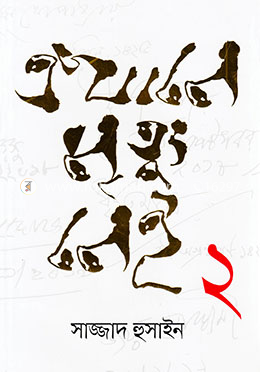 এখানে
মৃত্যু
নেই
২
সাজ্জাদ হুসাইন